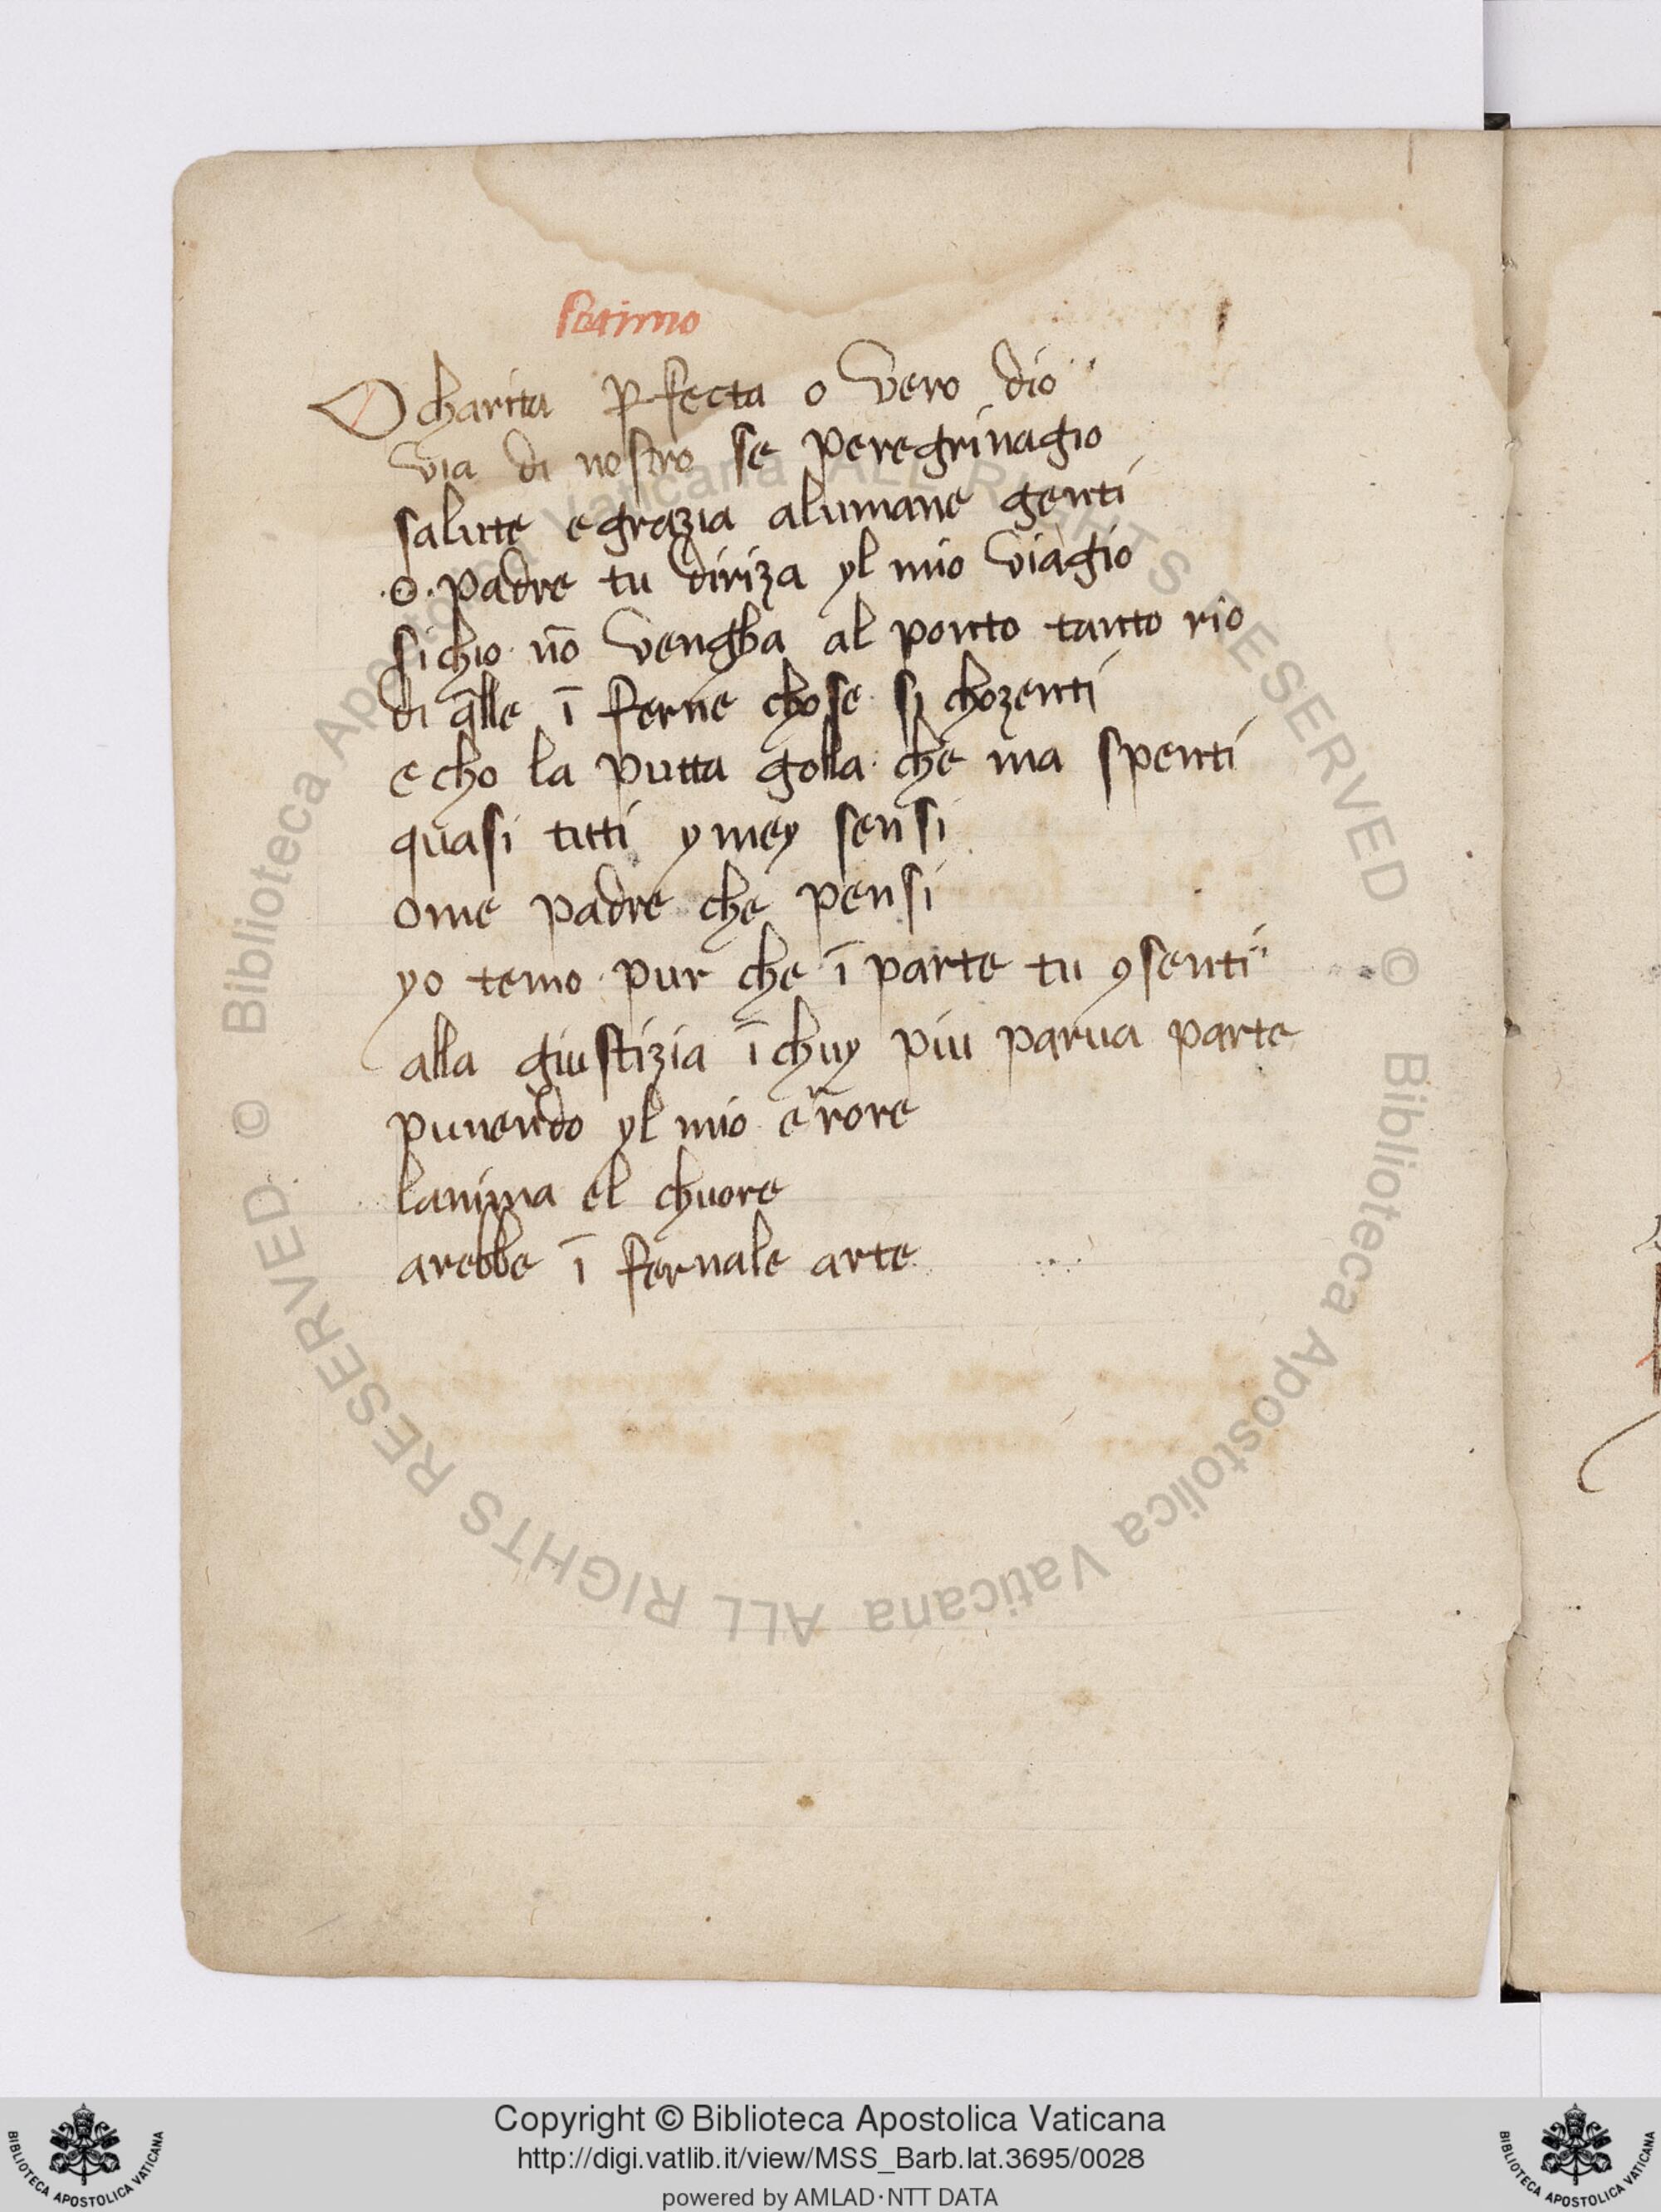 Setimo
O charita ꝑfecta o vero dio
via di nostro se peregrinagio
salute e grazia alumane genti
.o. padre tu diriza yl mio viagio
si chio nō vengha al ponto tanto rio
di q̄lle ī ferne chose si chozenti
e cho la putta golla che ma spenti
quasi tutti y mey sensi
ome padre che pensi
yo temo pur che ī parte tu ꝯsenti
alla giustizia ī chuy piu parua parte
punendo yl mio errore
lanima el chuore
arebbe ī fernale arte
© Biblioteca Apostolica Vaticana ALL RIGHTS RESERVED © Biblioteca Apostolica Vaticana ALL RIGHTS RESERVED
Copyright © Biblioteca Apostolica Vaticana
http://digi.vatlib.it/view/MSS_Barb.lat.3695/0028
powered by AMLAD·NTT DATA
BIBLIOTECA APOSTOLICA VATICANA
BIBLIOTECA APOSTOLICA VATICANA